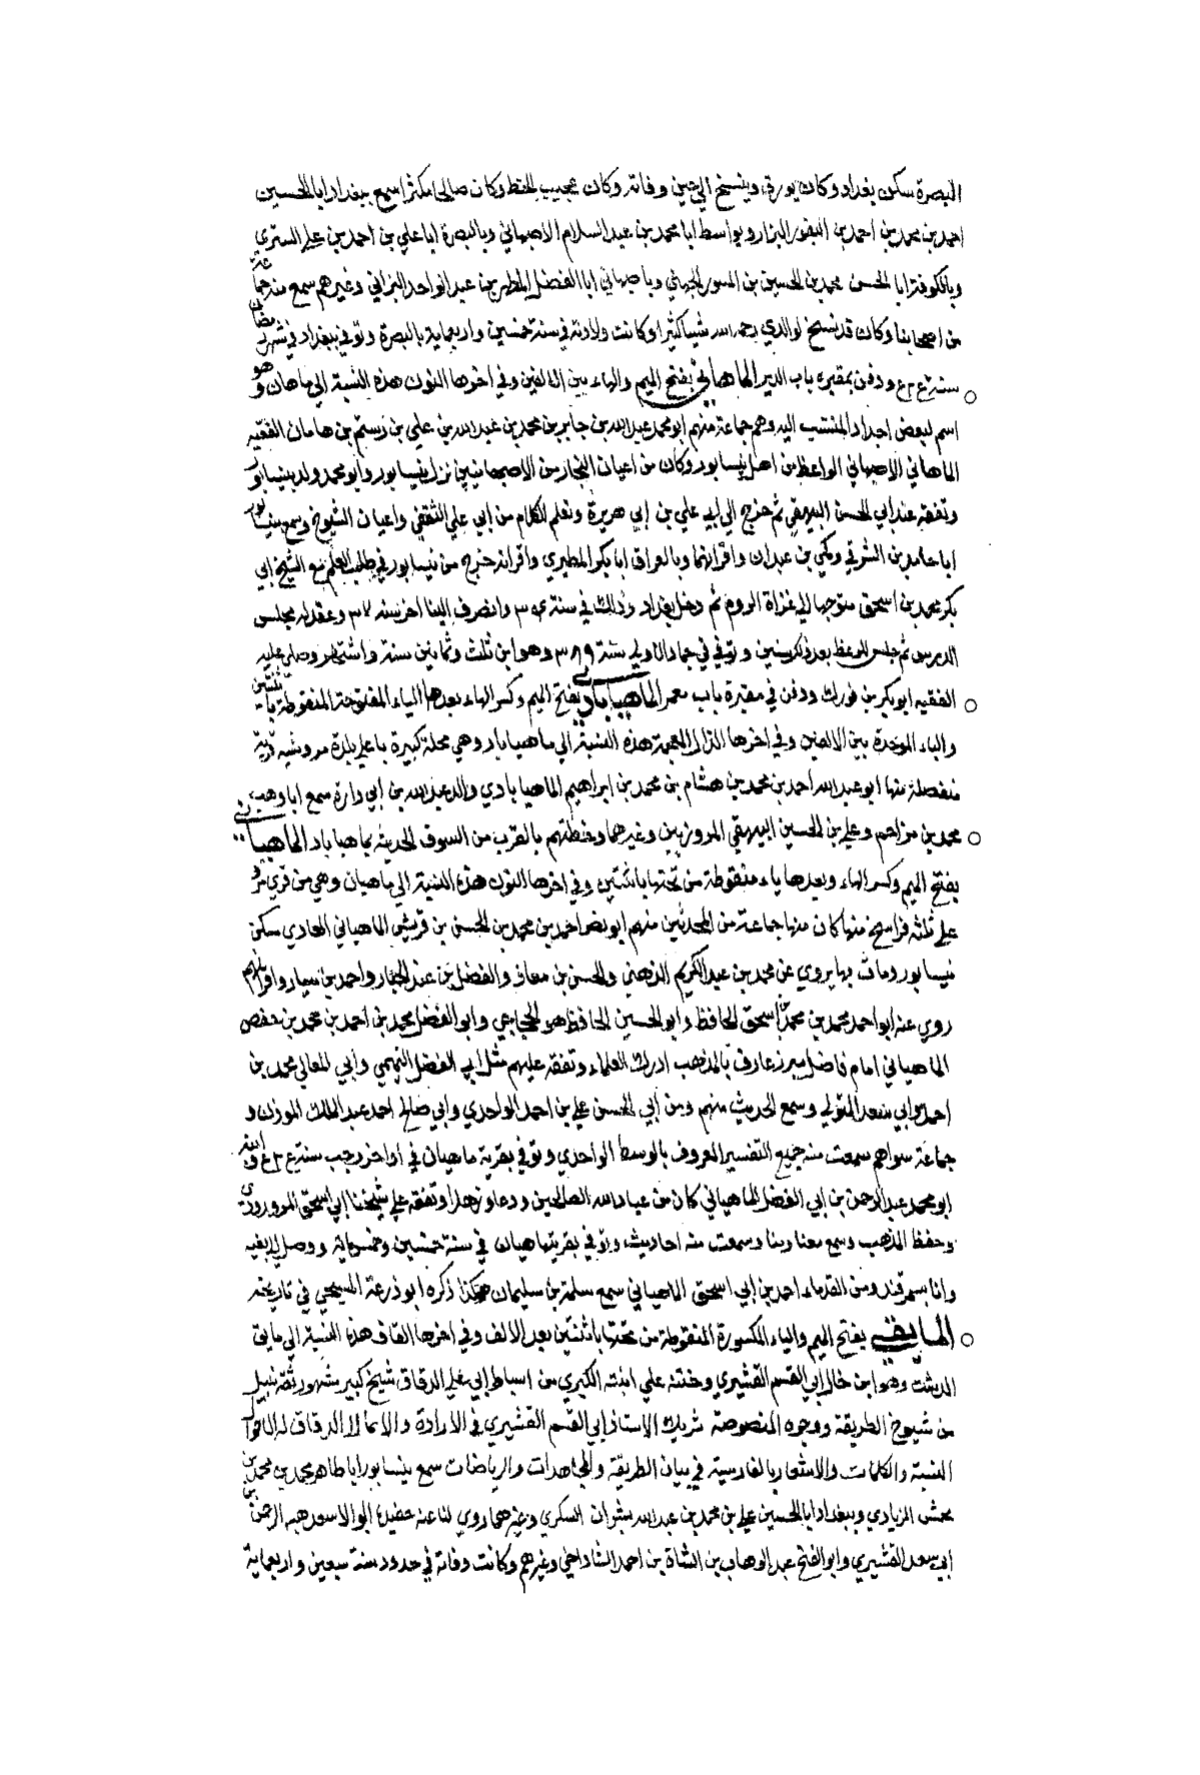 البصرة سكن بغداد وكان يورق وينسخ الي حين وفاته وكان عجيب الخط وكان صالحا مكثرا سمع ببغداد ابا الحسين
احمد بن محمد بن احمد بن النقور البزار وبواسط ابا محمد بن عبد السلام الاصبهاني وبالبصرة ابا علي بن احمد بن علي التستري
وبالكوفة ابا الحسن محمد بن الحسين بن المسور الجهني وباصبهان ابا الفضل المطهر بن عبد الواحد البزاني وغيرهم سمع منه جماعة
من اصحابنا وكان قد نسخ لوالدي رحمه الله شيا كثيرا وكانت ولادته في سنة خمسين واربعماية بالبصرة وتوفي ببغداد في شهر رمضان
سنة ودفن بمقبرة باب الدير الماهاني بفتح الميم والهاء بين الالفين وفي اخرها النون هذه النسبة الي ماهان وهو
اسم لبعض اجداد المنتسب اليه وهم جماعة منهم ابو محمد عبد الله بن جابر بن محمد بن عبد الله بن علي بن رستم بن هامان الفقيه
الماهاني الاصبهاني الواعظ من اهل نيسابور وكان من اعيان التجار من الاصبهانيين نزل نيسابور وابو محمد ولد بنيسابور
وتفقه عند ابي الحسن البيهقي ثم خرج الي ابي علي بن ابي هريرة وتعلم الكلام من ابي علي الثقفي واعيان الشيوخ وسمع بنيسابور
ابا حامد بن الشرقي ومكي بن عبدان واقرانهما وبالعراق ابا بكر المطيري واقرانه خرج من نيسابور في طلب العلم مع الشيخ ابي
بكر محمد بن اسحق متوجها الي غزاة الروم ثم دخل بغداد وذلك في سنة وانصرف الينا اخر سنة وعقد له مجلس
الدرس ثم جلس للوعظ بعد ذلك بسنين وتوفي في جمادي الاولي سنة ٣٨٩ وهو ابن ثلث وثمانين سنة وصلي عليه
الفقيه ابو بكر بن فورك ودفن في مقبرة باب معمر الماهياباذي بفتح الميم وكسر الهاء بعدها الياء المفتوحة المنقوطة باثنتين
والباء الموحدة بين الالفين وفي اخرها الذال المعجمة هذه النسبة الي ماهياباد وهي محلة كبيرة باعلي بلدة مرو شبه قرية
منفصلة منها ابو عبد الله احمد بن محمد بن هشام بن محمد بن ابراهيم الماهيابادي والد عبد الله بن ابي دارة سمع ابا وهب
محمد بن مزاحم وعلي بن الحسين البيهقي المروزيين وغيرهما وخطتهم بالقرب من السوق الحديثة بماهياباد الماهياني
بفتح الميم وكسر الهاء وبعدها ياء منقوطة من تحتها باثنتين وفي اخرها النون هذه النسبة الي ماهيان وهي من قري مرو
علي ثلثة فراسخ منها كان منها جماعة من المحدثين منهم ابو نصر احمد بن محمد بن الحسن بن قريش الماهياني العادي سكن
نيسابور ومات بها يروي عن محمد بن عبد الكريم الذهني والحسن بن معاذ والفضل بن عبد الجبار واحمد بن سيار واقرانهم
روي عنه ابو احمد محمد بن محمد بن اسحق الحافظ وابو الحسين الحافظ هو الحجاجي وابو الفضل محمد بن احمد بن محمد بن حفص
الماهياني امام فاضل مبرز عارف بالمذهب ادرك العلماء وتفقه عليهم مثل ابي الفضل التميمي وابي المعالي محمد بن
احمد وابي سعد المتولي وسمع الحديث منهم ومن ابي الحسن علي بن احمد الواحدي وابي صالح احمد عبد الملك الموذن و
جماعة سواهم سمعت منه جميع التفسير المعروف بالوسط الواحدي وتوفي بقرية ماهيان في اواخر رجب سنة وابنه
ابو محمد عبد الرحمن بن ابي الفضل الماهياني كان من عباد الله الصالحين وزهدا وتفقه علي شيخنا ابي اسحق المروروذي
وحفظ المذهب وسمع معنا وسمعت منه احاديث وتوفي بقريته ماهيان في سنة خمسين وخمسماية ووصل الي
وانا بسمرقند ومن القدماء احمد بن ابي اسحق الماهياني سمع سلمة بن سليمان هكذا ذكره ابو زرعة السنجي في تاريخه
المايقي بفتح الميم والياء المكسورة المنقوطة من تحتها باثنتين بعد الالف وفي اخرها القاف هذه النسبة الي مايق
الدشت وهو ابن خال ابي القسم القشيري وختنه علي ابنته الكبري من اسباط ابي علي الدقاق شيخ كبير مشهور ثقة نبيل
من شيوخ الطريقة ووجوه المتصوفة شريك الاستاذ ابي القسم القشيري في الارادة والانتماء الي الدقاق له الاحوال
السنية والكلمات والاشعار بالفارسية في بيان الطريقة والمجاهدات والرياضات سمع بنيسابور ابا طاهر محمد بن محمد بن
محمش الزيادي وببغداد ابا الحسين علي بن محمد بن عبد الله بشران السكري وغيرهما روي لنا عنه حفيده ابو الاسعد هبة الرحمن بن
ابي سعد القشيري وابو الفتح عبد الوهاب بن الشاة بن احمد الشاداخي وغيرهم وكانت وفاته في حدود سنة سبعين واربعماية